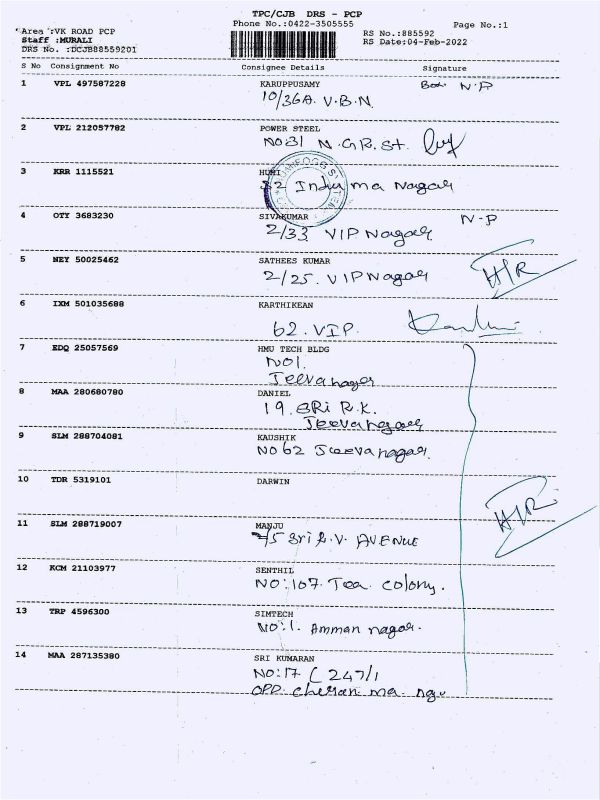 TPC/CJB DRS - PCP
Phone No.:0422-3505555
Page No.:1
Area :VK ROAD PCP
Staff :MURALI
DRS No. :DCJB88559201
RS No.:885592
RS Date:04-Feb-2022
S No Consignment No Consignee Details Signature
1 VPL 497587228 KARUPPUSAMY
10/36A. V.B.N. N.P
2 VPL 212057782 POWER STEEL
NO31 N.GR.St.
3 KRR 1115521 HUMI
32 Indu ma Nagar
4 OTY 3683230 SIVAKUMAR N-P
2/33 VIP Nagar
5 NEY 50025462 SATHEES KUMAR
2/25. VIP Nagar H/R
6 IXM 501035688 KARTHIKEAN
62. VIP.
7 EDQ 25057569 HMU TECH BLDG
NO1.
Jeeva nagar
8 MAA 280680780 DANIEL
19. SRi R.K.
Jeeva nagar
9 SLM 288704081 KAUSHIK
NO 62 Jeeva nagar.
10 TDR 5319101 DARWIN
H/R
11 SLM 288719007 MANJU
AVENUE
12 KCM 21103977 SENTHIL
NO:107. Tea colony.
13 TRP 4596300 SIMTECH
NO:1. Amman nagar.
14 MAA 287135380 SRI KUMARAN
NO:17 ( 247/1
OPP. cheran ma. ngr